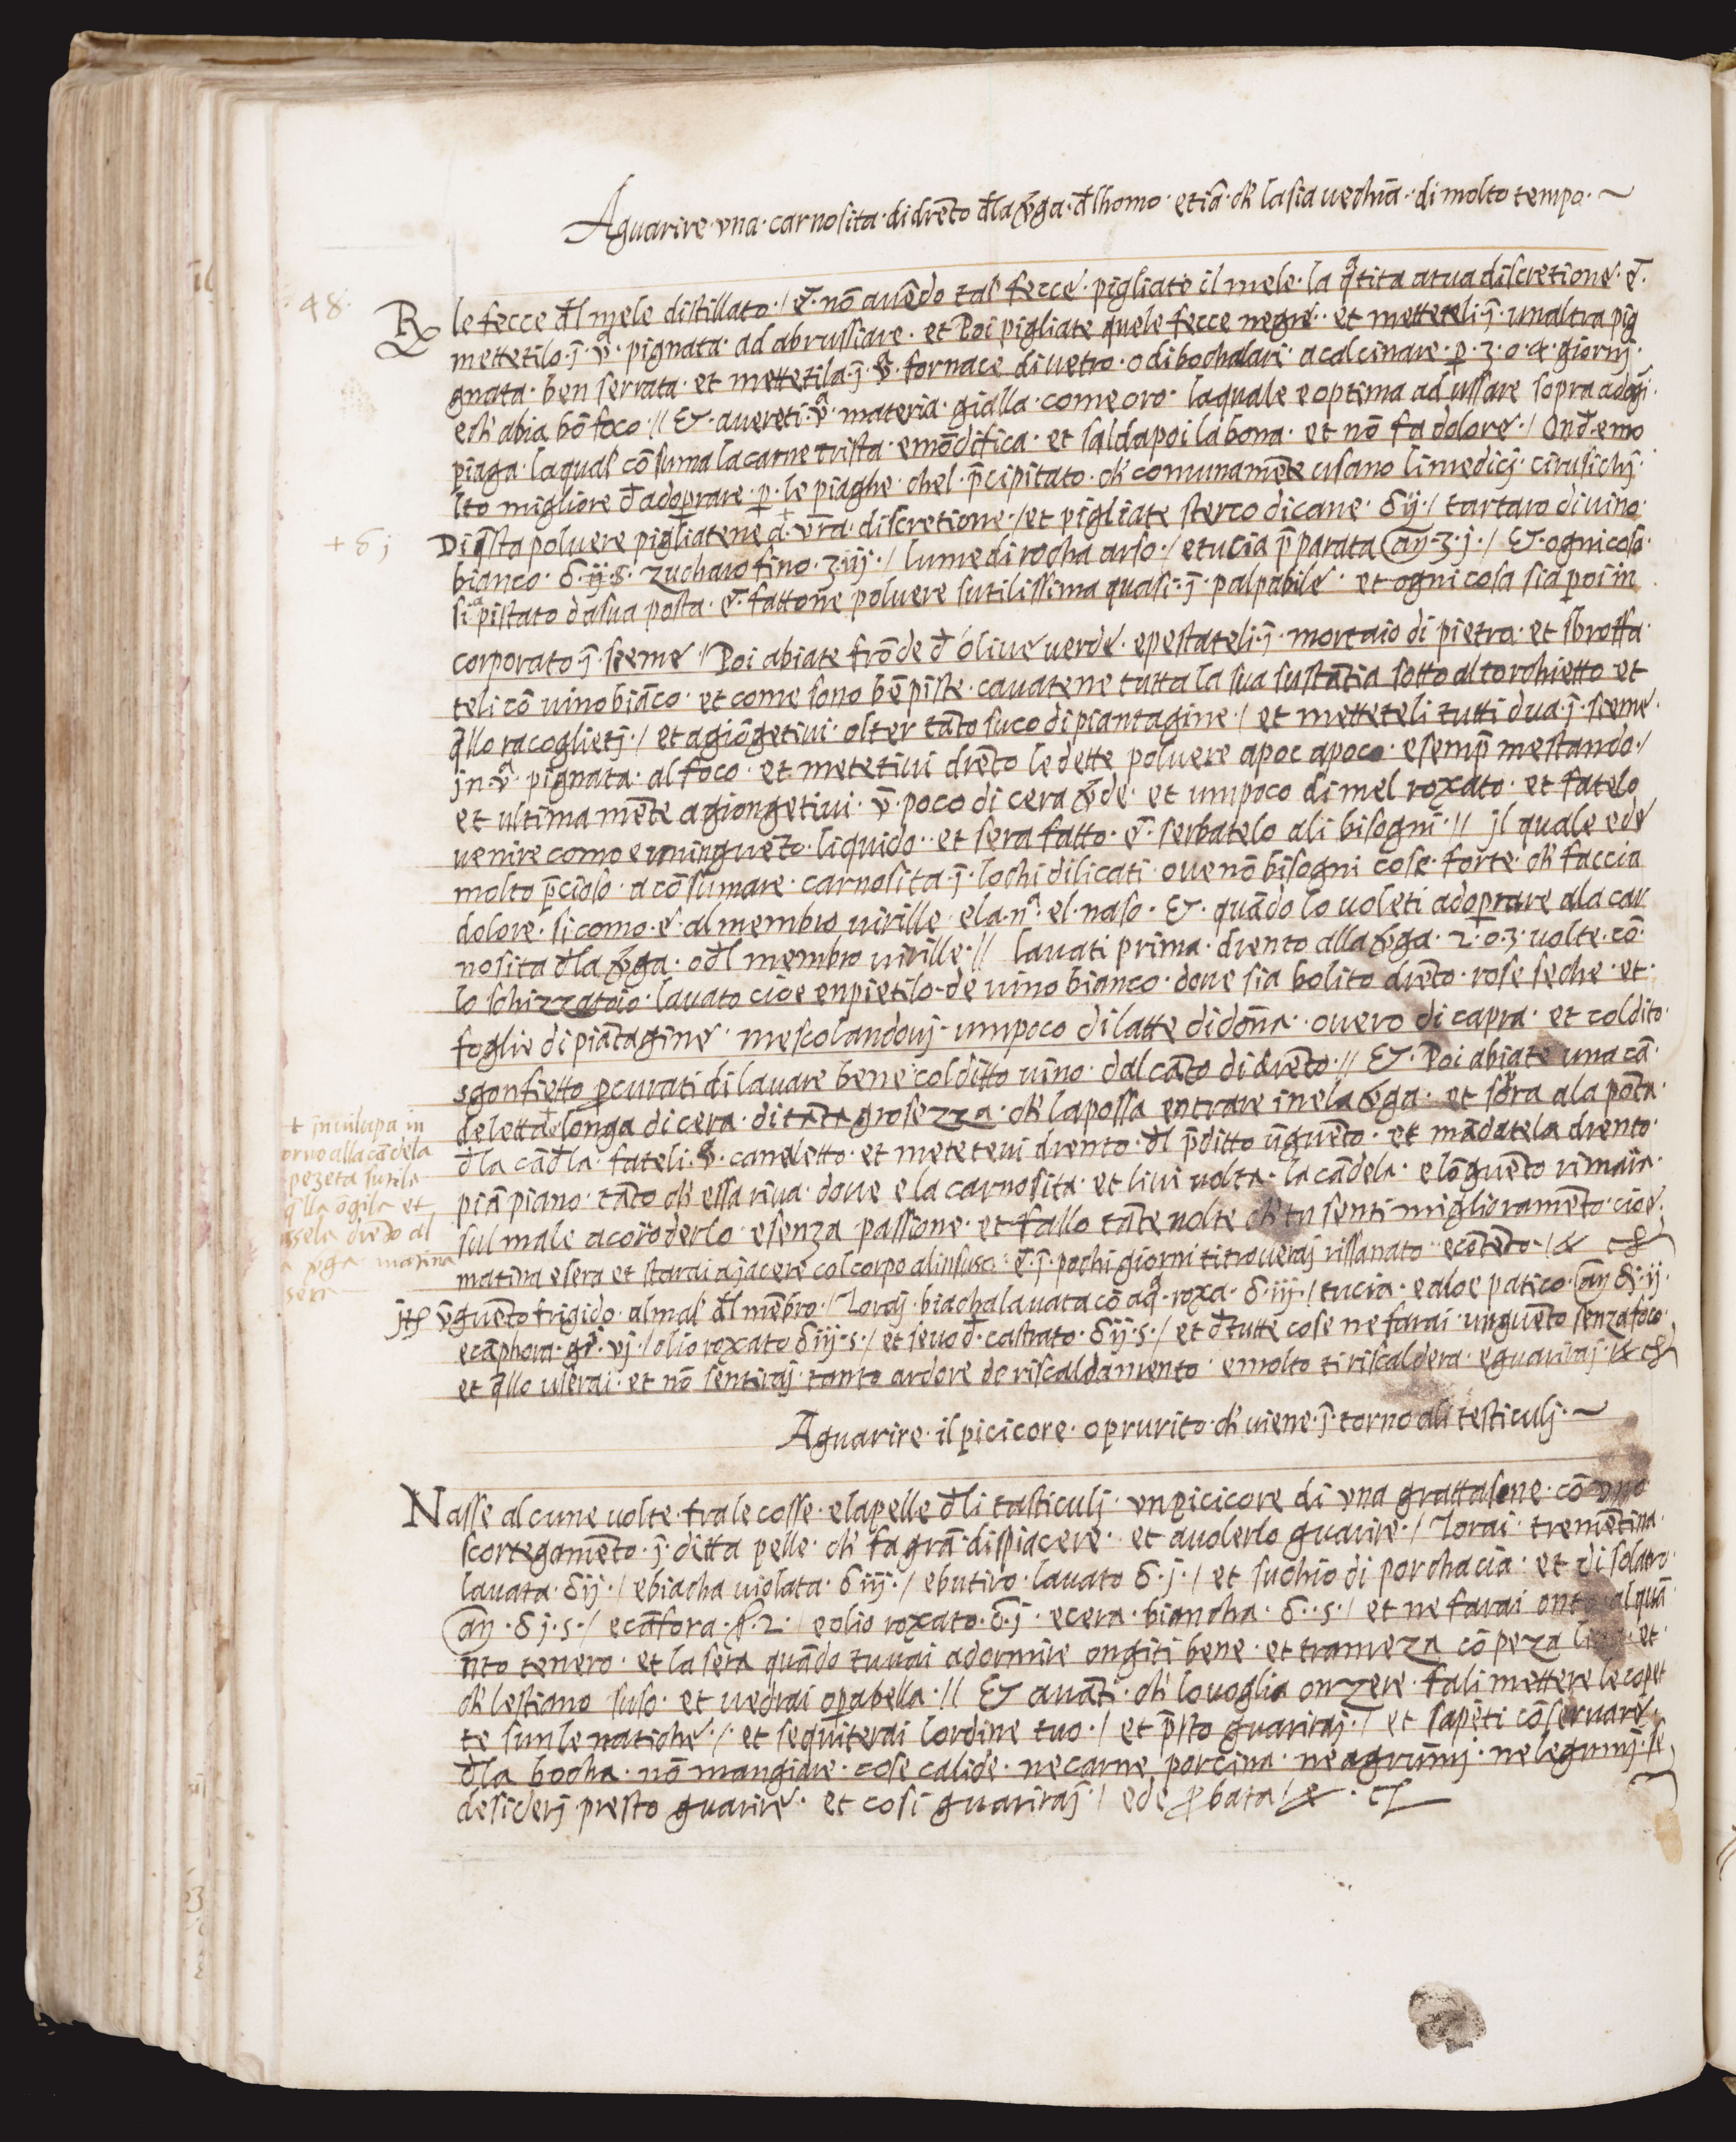 Aguarire · vna · carnosita · didrēto đla v̄ga · đlhomo · etiā · ch' lasia uechia · di molto tempo · ~
· 48 ·
℞ le fecce đl mele distillato · / e · nō avēdo tal fecce · pigliate il mele · la q̄tita atua discretione · e ·
mettetilo · ī · vᵃ · pignata · ad abrussiare · et Poi pigliate quele fecce negre · et metteteli · ī · unaltra pig
gnata · ben serrata · et mettetila · ī · vᵃ · fornace di uetro · o di bochalari · acalcinare · p · 3 · o · 4 · giornj ·
e ch' abia bō foco // Et · avereti · vᵃ · materia · gialla · come oro · laquale e optima ad ussare sopra adogi ·
piaga · laqual cō suma lacarne trista · emōdifica · et saldapoi labona · et nō fa dolore · / Onđ emo
lto migliore đ adoprare · p · le piaghe · chel · p̄cipitato · ch' comunamēte usano limedicj · cirusichj ·
+ δ j
Di q̄sta poluere pigliatene a · vr̄a · discretione · / et pigliate sterco dicane · δ ij · / tartaro di uino ·
bianco · δ · ij · s · zucharo fino · ʒ iij · / lume di rocha arso · / etucia p̄parata añ · ʒ · j · / Et · ogni cosa ·
siᵃ pistato da sua posta · e · fattone poluere sutilissima quasi · ī · palpabile · et ogni cosa sia poi in
corporato ī · seeme · / Poi abiate frōde đ oliue uerde · epestateli · ī · mortaio di pietra · et sbroffa ·
teli cō uino biāco · et come sono bē piste · cauatene tutta la sua sustātia sotto al torchietto et
q̄llo racoglietj · / et agiōgetiui · olter tāto suco di piantagine · / et metteteli tutti dua · ī · sieme ·
jn vᵃ · pignata · al foco · et metetiui drēto le dette poluere apoc apoco · esemp̄ mestando · /
et ultima mēte agiongetiui · v̄ · poco di cera v̄de · et umpoco di mel roxato · et fatelo
uenire como e vn inguēto · liquido · et sera fatto · e · serbatelo ali bisogni · // jl quale ede
molto p̄cioso · a cōsumare · carnosita · ī · lochi dilicati · oue nō bisogni cose · forte · ch' faccia
dolore · si como · e · al membro uirille · ela · nᵃ · el · naso · Et · quādo lo uoleti adoprare ala car
nosita đla v̄ga · ođl membro uirille · // lauati prima · drento alla v̄ga · 2 · o · 3 · uolte · cō ·
lo schizzatoio · lauato cioe enpietilo · de uino bianco · doue sia bolito drēto · rose seche · et ·
foglie di piātagine · mescolandouj · umpoco di latte di dōna · ouero di capra · et col dito ·
sgonfietto pcurati di lauare bene · col ditto uino · dal cāto di drēto · // Et · Poi abiate una cā ·
deletta longa di cera · di tāta grosezza · ch' la possa entrare inela v̄ga · et sopra ala pōta ·
đla cāđla · fateli · vᵃ · caneletto · et meteteui drento · đl p̄ditto ūguēto · et mādatela drento ·
piā piano · tāto ch' essa riua · doue e la carnosita · et liui uolta · la cādela · elōguēto rimaia ·
sul male acoroderlo · esenza passione · et fallo tāte uolte ch' tu senti miglioramēto · cioe ·
matina e sera et starai ajacere col corpo alinsuso · e · ī · pochi giorni ti troueraj rissanato · ecōtēto · / &
+ īnvilupa in
orno alla cādela
pezeta sutila
q̄lla ōgila et
sela drēto al
a v̄ga · matina
sera
jtē v̄guēto frigido · al mal' đl mēbro · / Torāj · biacha lauata cō aqᵃ · roxa · δ · iij · / tucia · ealoe patico · añ δ · ij ·
ecāphora · gr̄ · vj · / olio roxato δ iij · s · / et seuo đ · castrato · δ ij · s · / et đ tutte cose ne farai · unguēto senza foco ·
et q̄llo userai · et nō sentiraj · tanto ardore de riscaldamento · emolto ti riscaldera · eguariraj · &
Aguarire · il picicore · o prurito · ch' uiene · ī · torno ali testiculj · ~
Nasse alcune uolte · fra le cosse · elapelle đli tasticulj · vn picicore di vna grattasone · cō vno
scortegamēto · ī · ditta pelle · ch' fa grā dispiacere · et auolerlo guarire · / Torai · tremētina ·
lauata · δ ij · / ebiacha uiolata · δ iij · / ebutiro · lauato δ · j · / et suchio di porchacia · et di solatro ·
añ · δ j · s · / ecāfora · 2 · / eolio roxato · δ · j · ecera · biancha · δ · s · / et ne farai alquā
nto tenero · et la sera quādo tu uai adormire ongiti bene · et trameza cō peza et ·
ch' lestiano suso · et uedrai opa bella · // Et auāti · ch' lo uoglia onzere · fali mettere le copet
te sun le natiche · / et sequiterai lordine tuo · / et p̄sto guariraj · / et sapēti cōseruare ·
đla bocha · nō mangiare · cose calide · ne carne porcina · ne agrumj · ne legumj · se
desiderj presto guarire · et cosi guariraj · / ede probata / &